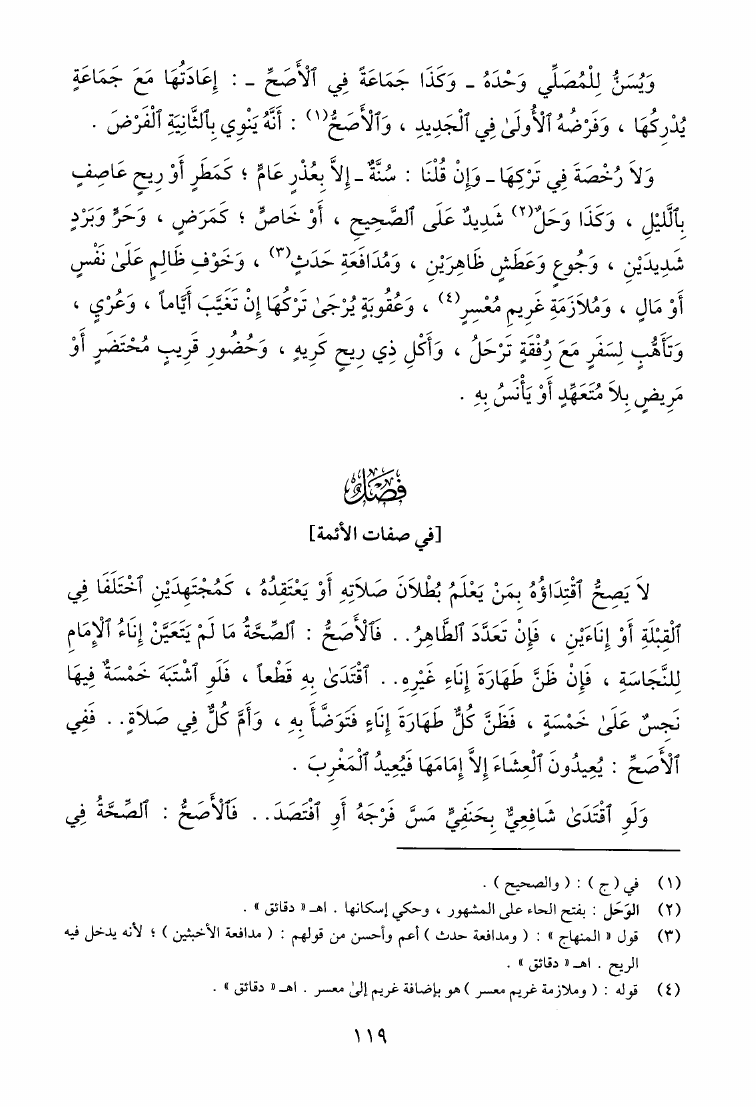 وَيُسَنُّ لِلْمُصَلِّي وَحْدَهُ ـ وَكَذَا جَمَاعَةً فِي ٱلْأَصَحِّ ـ : إِعَادَتُهَا مَعَ جَمَاعَةٍ
يُدْرِكُهَا ، وَفَرْضُهُ ٱلْأُولَىٰ فِي ٱلْجَدِيدِ ، وَٱلْأَصَحُّ(١) : أَنَّهُ يَنْوِي بِٱلثَّانِيَةِ ٱلْفَرْضَ .
وَلاَ رُخْصَةَ فِي تَرْكِهَا ـ وَإِنْ قُلْنَا : سُنَّةٌ ـ إِلاَّ بِعُذْرٍ عَامٍّ ؛ كَمَطَرٍ أَوْ رِيحٍ عَاصِفٍ
بِٱللَّيْلِ ، وَكَذَا وَحَلٌ(٢) شَدِيدٌ عَلَى ٱلصَّحِيحِ ، أَوْ خَاصٍّ ؛ كَمَرَضٍ ، وَحَرٍّ وَبَرْدٍ
شَدِيدَيْنِ ، وَجُوعٍ وَعَطَشٍ ظَاهِرَيْنِ ، وَمُدَافَعَةِ حَدَثٍ(٣) ، وَخَوْفِ ظَالِمٍ عَلَىٰ نَفْسٍ
أَوْ مَالٍ ، وَمُلاَزَمَةِ غَرِيمِ مُعْسِرٍ(٤) ، وَعُقُوبَةٍ يُرْجَىٰ تَرْكُهَا إِنْ تَغَيَّبَ أَيَّاماً ، وَعُرْيٍ ،
وَتَأَهُّبٍ لِسَفَرٍ مَعَ رُفْقَةٍ تَرْحَلُ ، وَأَكْلِ ذِي رِيحٍ كَرِيهٍ ، وَحُضُورِ قَرِيبٍ مُحْتَضَرٍ أَوْ
مَرِيضٍ بِلاَ مُتَعَهِّدٍ أَوْ يَأْنَسُ بِهِ .
فَصْلٌ
[في صفات الأئمة]
لاَ يَصِحُّ ٱقْتِدَاؤُهُ بِمَنْ يَعْلَمُ بُطْلاَنَ صَلاَتِهِ أَوْ يَعْتَقِدُهُ ، كَمُجْتَهِدَيْنِ ٱخْتَلَفَا فِي
ٱلْقِبْلَةِ أَوْ إِنَاءَيْنِ ، فَإِنْ تَعَدَّدَ ٱلطَّاهِرُ.. فَٱلْأَصَحُّ : ٱلصِّحَّةُ مَا لَمْ يَتَعَيَّنْ إِنَاءُ ٱلْإِمَامِ
لِلنَّجَاسَةِ ، فَإِنْ ظَنَّ طَهَارَةَ إِنَاءِ غَيْرِهِ.. ٱقْتَدَىٰ بِهِ قَطْعاً ، فَلَوِ ٱشْتَبَهَ خَمْسَةٌ فِيهَا
نَجِسٌ عَلَىٰ خَمْسَةٍ ، فَظَنَّ كُلٌّ طَهَارَةَ إِنَاءٍ فَتَوَضَّأَ بِهِ ، وَأَمَّ كُلٌّ فِي صَلاَةٍ.. فَفِي
ٱلْأَصَحِّ : يُعِيدُونَ ٱلْعِشَاءَ إِلاَّ إِمَامَهَا فَيُعِيدُ ٱلْمَغْرِبَ .
وَلَوِ ٱقْتَدَىٰ شَافِعِيٌّ بِحَنَفِيٍّ مَسَّ فَرْجَهُ أَوِ ٱفْتَصَدَ.. فَٱلْأَصَحُّ : ٱلصِّحَّةُ فِي
(١) في (ج) : ( والصحيح ) .
(٢) الوَحَل : بفتح الحاء على المشهور ، وحكي إسكانها . اهـ « دقائق » .
(٣) قول « المنهاج » : ( ومدافعة حدث ) أعم وأحسن من قولهم : ( مدافعة الأخبثين ) ؛ لأنه يدخل فيه
الريح . اهـ « دقائق » .
(٤) قوله : ( وملازمة غريم معسر ) هو بإضافة غريم إلىٰ معسر . اهـ « دقائق » .
١١٩